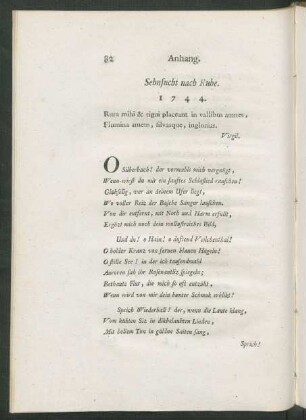 82 Anhang.
Sehnsucht nach Ruhe.
1 7 4 4.
Rura mihi & rigui placeant in vallibus amnes,
Flumina amem, silvasque, inglorius.
Virgil.
O Silberbach! der vormahls mich vergnügt,
Wenn wirst du mir ein sanftes Schlaflied rauschen?
Glückselig, wer an deinem Ufer liegt,
Wo voller Reiz der Büsche Sänger lauschen.
Von dir entfernt, mit Noth und Harm erfüllt,
Ergözt mich noch dein wollustreiches Bild,
Und du! o Hain! o duftend Veilchenthal!
O holder Kranz von fernen blauen Hügeln!
O stiller See! in der ich tausendmahl
Auroren sah ihr Rosenantlitz spiegeln;
Bethaute Flur, die mich so oft entzükt,
Wenn wird von mir dein bunter Schmuck erblikt?
Sprich Wiederhall! der, wenn die Laute klang,
Vom kühlen Siz in dikbelaubten Linden,
Mit hellem Ton in güldne Saiten sang,
Sprich!